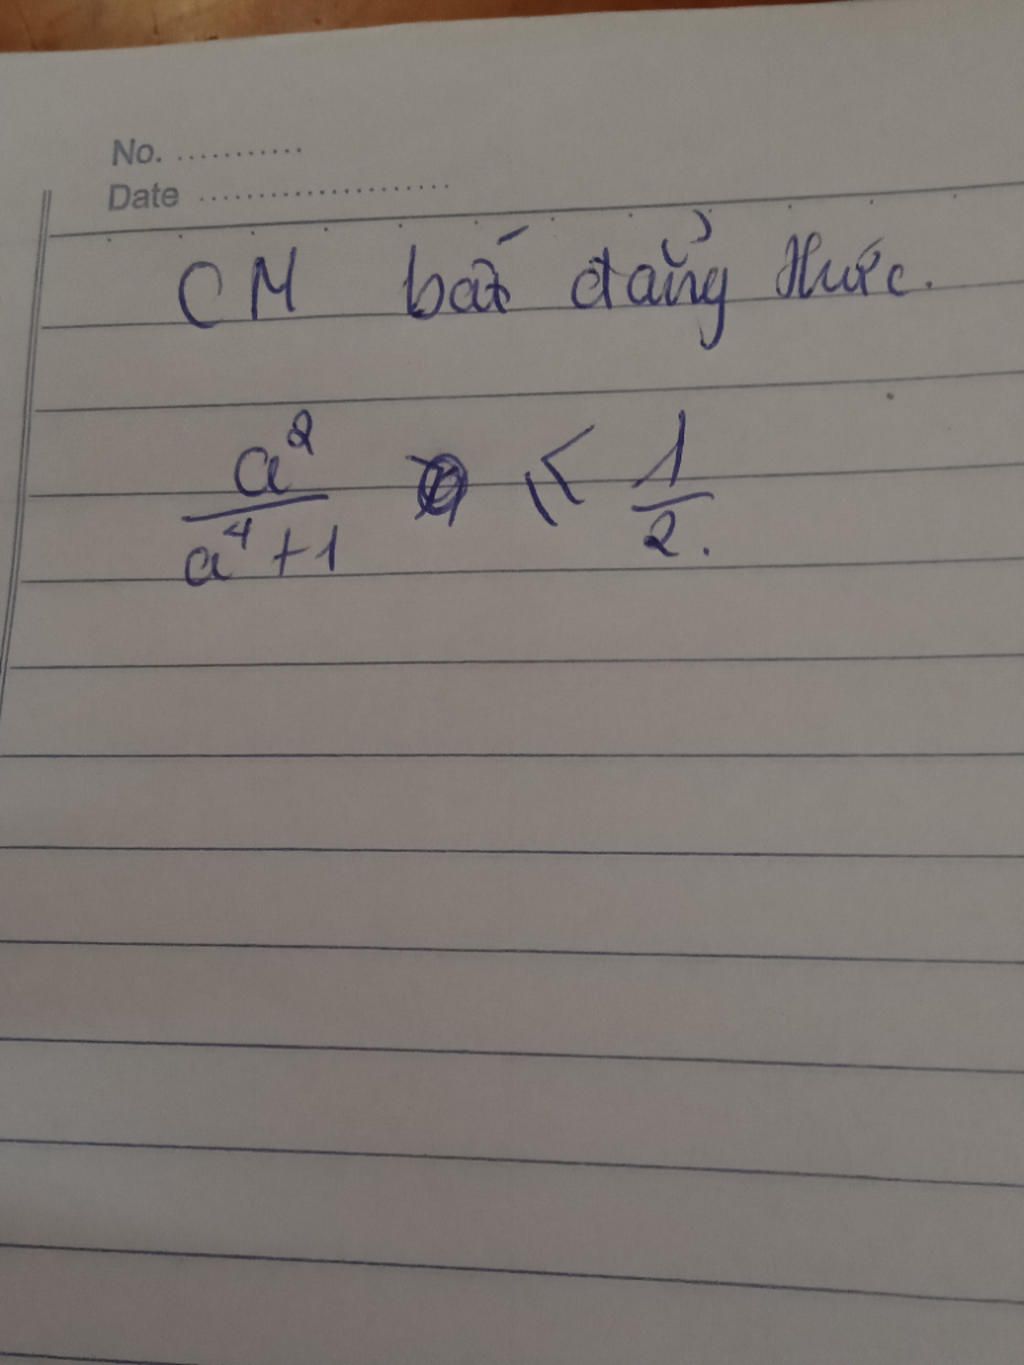 No. ...........
Date .....................
CM bất đẳng thức.
a² / a⁴+1 ≤ 1/2.